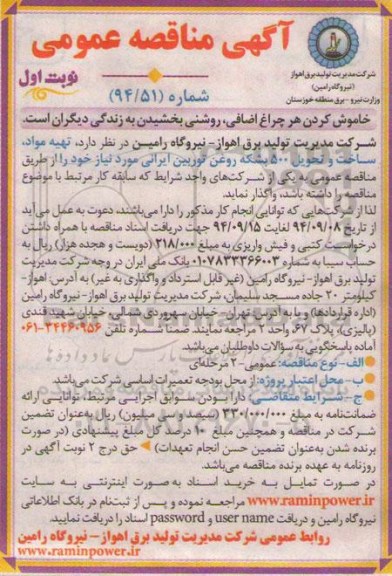 آگهی مناقصه عمومی
نوبت اول
شماره (۹۴/۵۱)
شرکت مدیریت تولید برق اهواز
(نیروگاه رامین)
وزارت نیرو - برق منطقه خوزستان
خاموش کردن هر چراغ اضافی، روشنی بخشیدن به زندگی دیگران است.
شرکت مدیریت تولید برق اهواز- نیروگاه رامین در نظر دارد، تهیه مواد،
ساخت و تحویل ۵۰۰ بشکه روغن توربین ایرانی مورد نیاز خود را از طریق
مناقصه عمومی به یکی از شرکت‌های واجد شرایط که سابقه کار مرتبط با موضوع
مناقصه را داشته باشد، واگذار نماید.
لذا از شرکت‌هایی که توانایی انجام کار مذکور را دارا می‌باشند، دعوت به عمل می‌آید
از تاریخ ۹۴/۰۹/۰۸ لغایت ۹۴/۰۹/۱۵ جهت دریافت اسناد مناقصه با همراه داشتن
درخواست کتبی و فیش واریزی به مبلغ ۲۱۸/۰۰۰ (دویست و هجده هزار) ریال به
حساب سیبا به شماره ۰۱۰۷۸۳۳۳۶۶۰۰۳ بانک ملی ایران در وجه شرکت مدیریت
تولید برق اهواز- نیروگاه رامین (غیر قابل استرداد و واگذاری به غیر) به آدرس: اهواز-
کیلومتر ۲۰ جاده مسجد سلیمان، شرکت مدیریت تولید برق اهواز- نیروگاه رامین
(اداره قراردادها) و یا به آدرس تهران- خیابان سهروردی شمالی، خیابان شهید قندی
(پالیزی)، پلاک ۶۷، واحد ۲ مراجعه نمایند. ضمنا شماره تلفن ۳۴۴۶۰۹۵۶-۰۶۱
آماده پاسخگویی به سؤالات داوطلبان می‌باشد.
الف- نوع مناقصه: عمومی-۲ مرحله‌ای
ب- محل اعتبار پروژه: از محل بودجه تعمیرات اساسی شرکت می‌باشد.
ج- شرایط متقاضی: دارا بودن سوابق اجرایی مرتبط، توانایی ارائه
ضمانت‌نامه به مبلغ ۳۳۰/۰۰۰/۰۰۰ (سیصد و سی میلیون) ریال به‌عنوان تضمین
شرکت در مناقصه و همچنین مبلغ ۱۰ درصد کل مبلغ پیشنهادی (در صورت
برنده شدن به‌عنوان تضمین حسن انجام تعهدات) حق درج ۲ نوبت آگهی در
روزنامه به عهده برنده مناقصه می‌باشد.
در صورت تمایل به خرید اسناد به صورت اینترنتی به سایت
www.raminpower.ir مراجعه نموده و پس از ثبت‌نام در بانک اطلاعاتی
نیروگاه رامین و دریافت user name و password اسناد را دریافت نمایید.
روابط عمومی شرکت مدیریت تولید برق اهواز - نیروگاه رامین
www.raminpower.ir